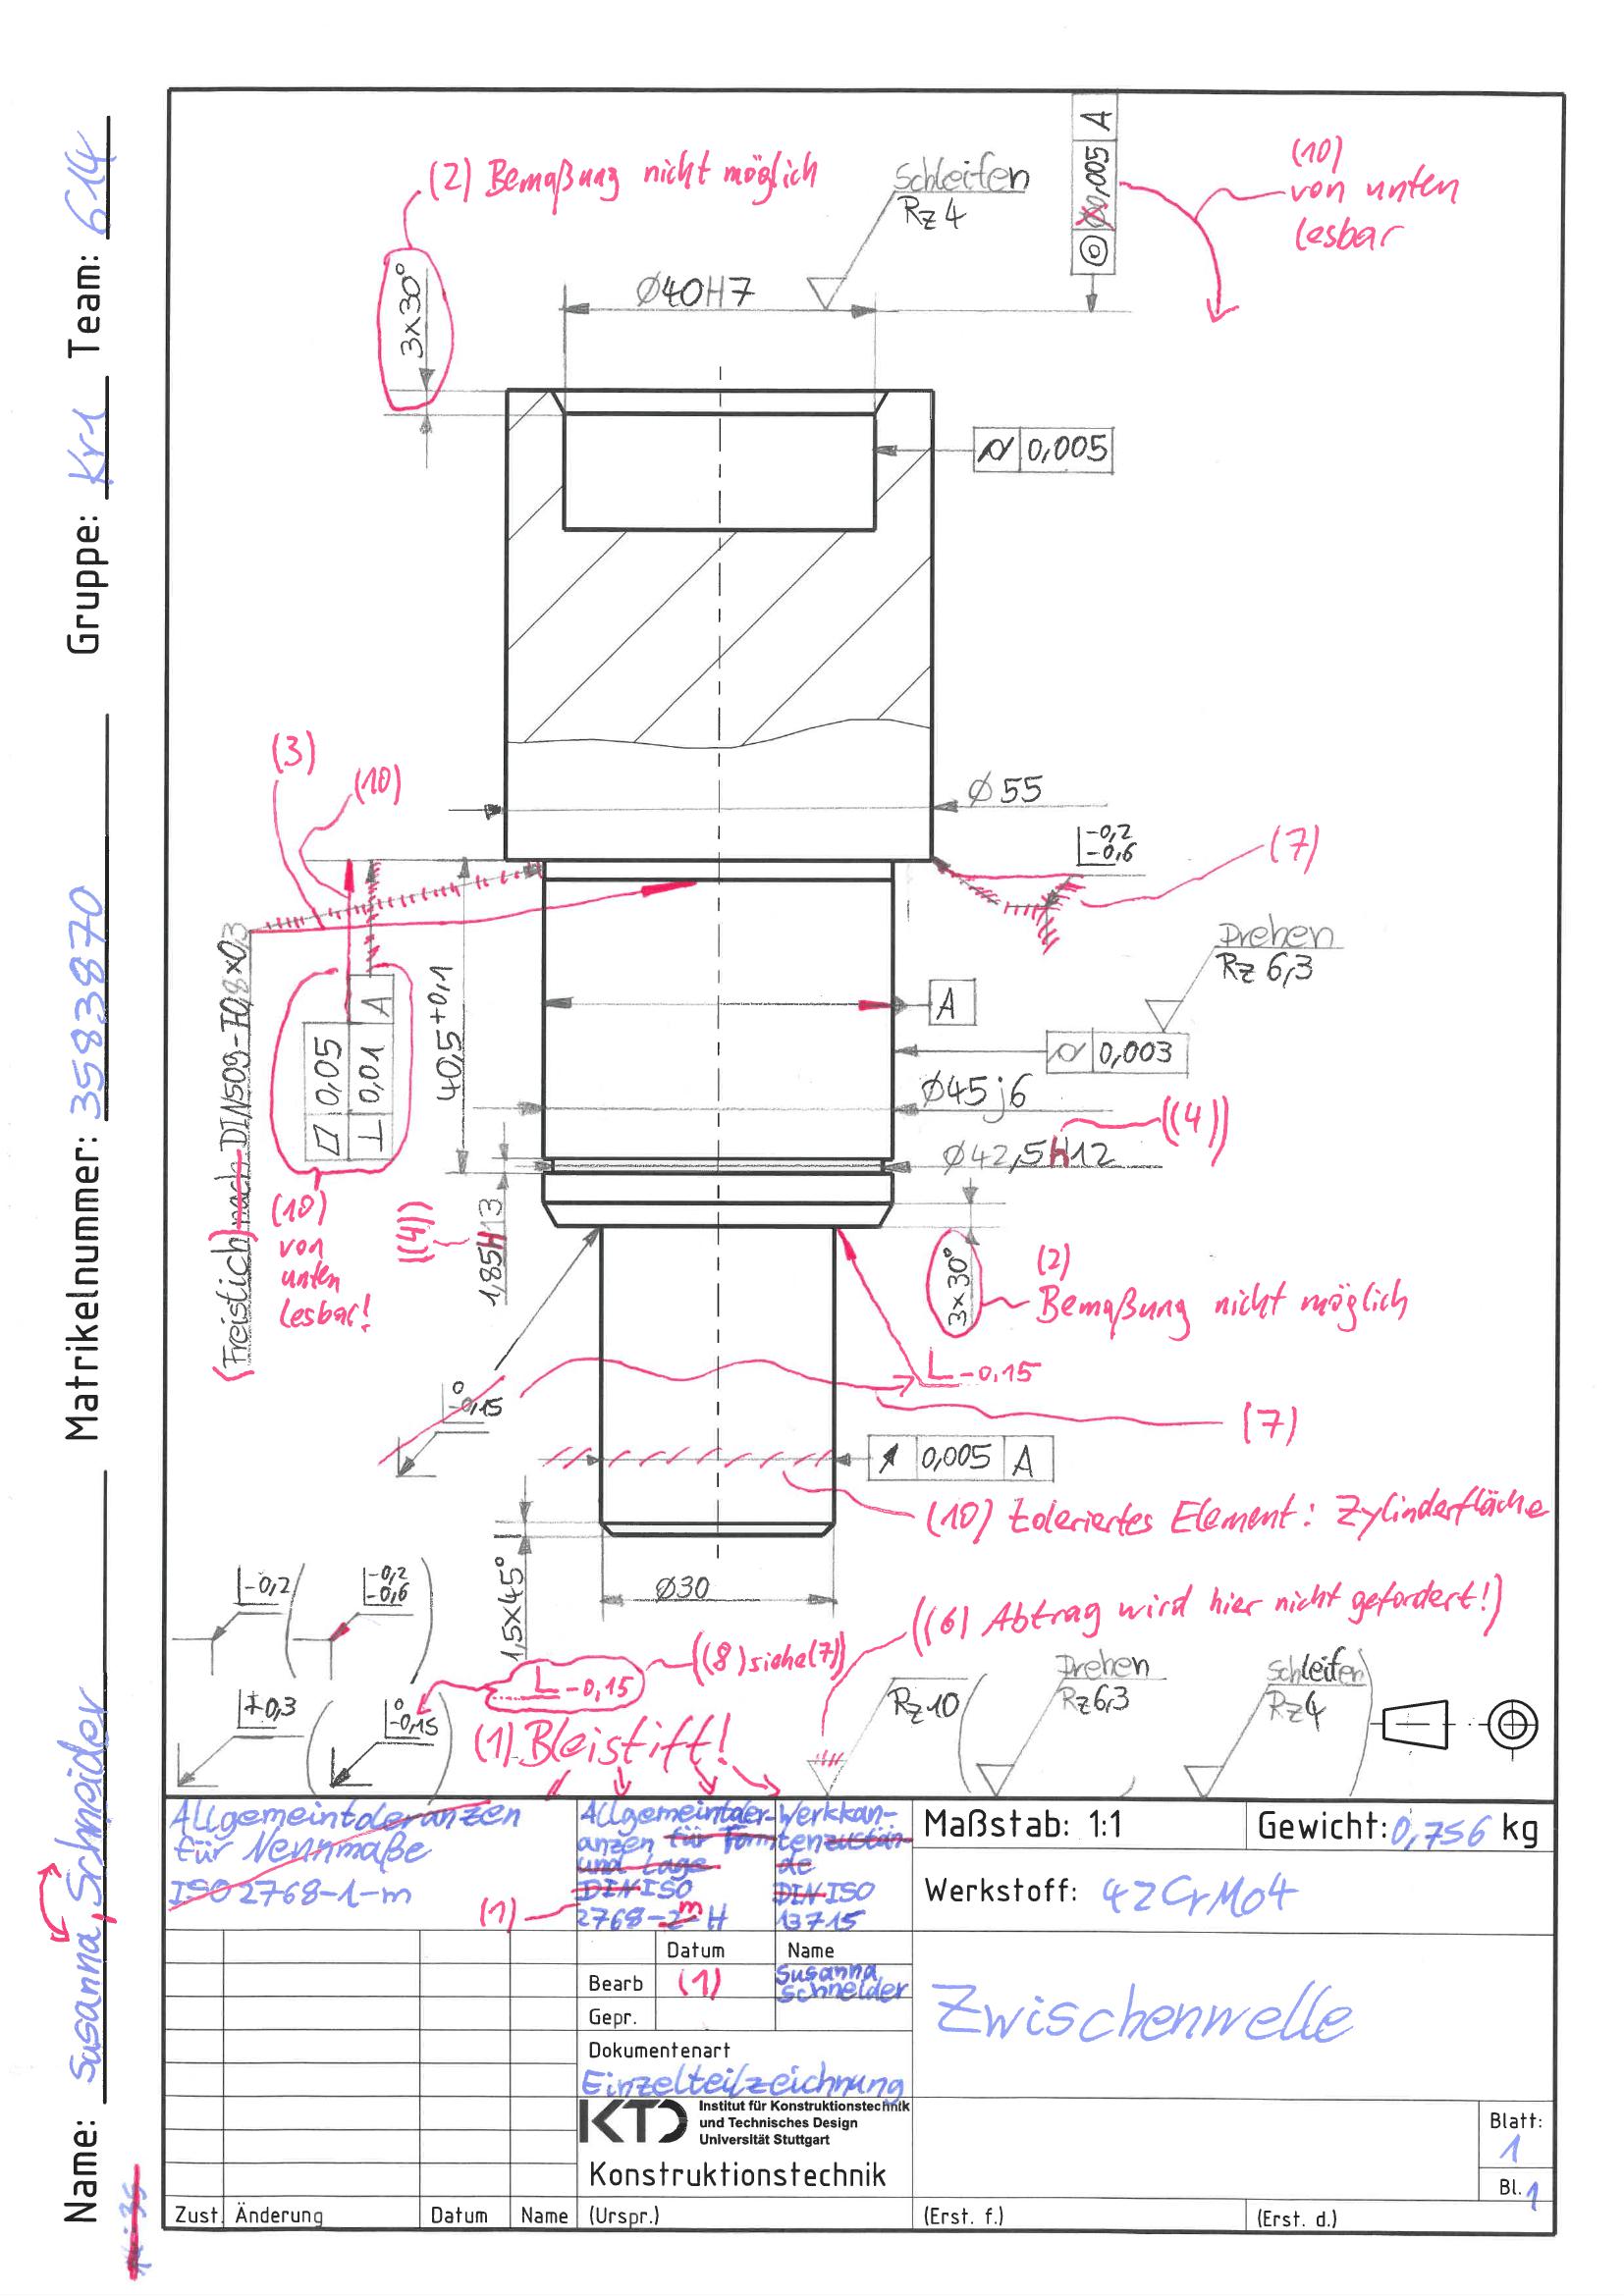 Name: Susanna, Schneider
Matrikelnummer: 3583870
Gruppe: Kr1
Team: 614
(2) Bemaßung nicht möglich
3×30°
Schleifen
Rz 4
Ø40H7
◎ Ø0,005 A
(10)
von unten
lesbar
⌭ 0,005
(3)
(10)
Ø55
-0,2
-0,6
(7)
Drehen
Rz 6,3
(Freistich) nach DIN509-F0,8×0,3
⏥ 0,05
⊥ 0,01 A
40,5+0,1
A
⌭ 0,003
Ø45j6
((4))
Ø42,5h12
(10)
von
unten
lesbar!
((4))
1,85H13
3×30°
(2)
Bemaßung nicht möglich
0
-0,15
-0,15
(7)
↗ 0,005 A
(10) toleriertes Element: Zylinderfläche
1,5×45°
Ø30
-0,2
-0,2
-0,6
((6) Abtrag wird hier nicht gefordert!)
-0,15
((8) siehe (7))
±0,3
0
-0,15
(1) Bleistift!
Rz10
Drehen
Rz6,3
Schleifen
Rz4
Allgemeintoleranzen
für Nennmaße
ISO 2768-1-m
(1)
Allgemeintoler-
anzen für Form
und Lage
DIN ISO
2768-2-H
m
Werkkan-
tenzustän-
de
DIN ISO
13715
Maßstab: 1:1
Gewicht: 0,756 kg
Werkstoff: 42CrMo4
Datum
Name
Bearb
(1)
Susanna
Schneider
Gepr.
Zwischenwelle
Dokumentenart
Einzelteilzeichnung
KTD
Institut für Konstruktionstechnik
und Technisches Design
Universität Stuttgart
Konstruktionstechnik
Blatt:
1
Bl. 1
Zust.
Änderung
Datum
Name
(Urspr.)
(Erst. f.)
(Erst. d.)